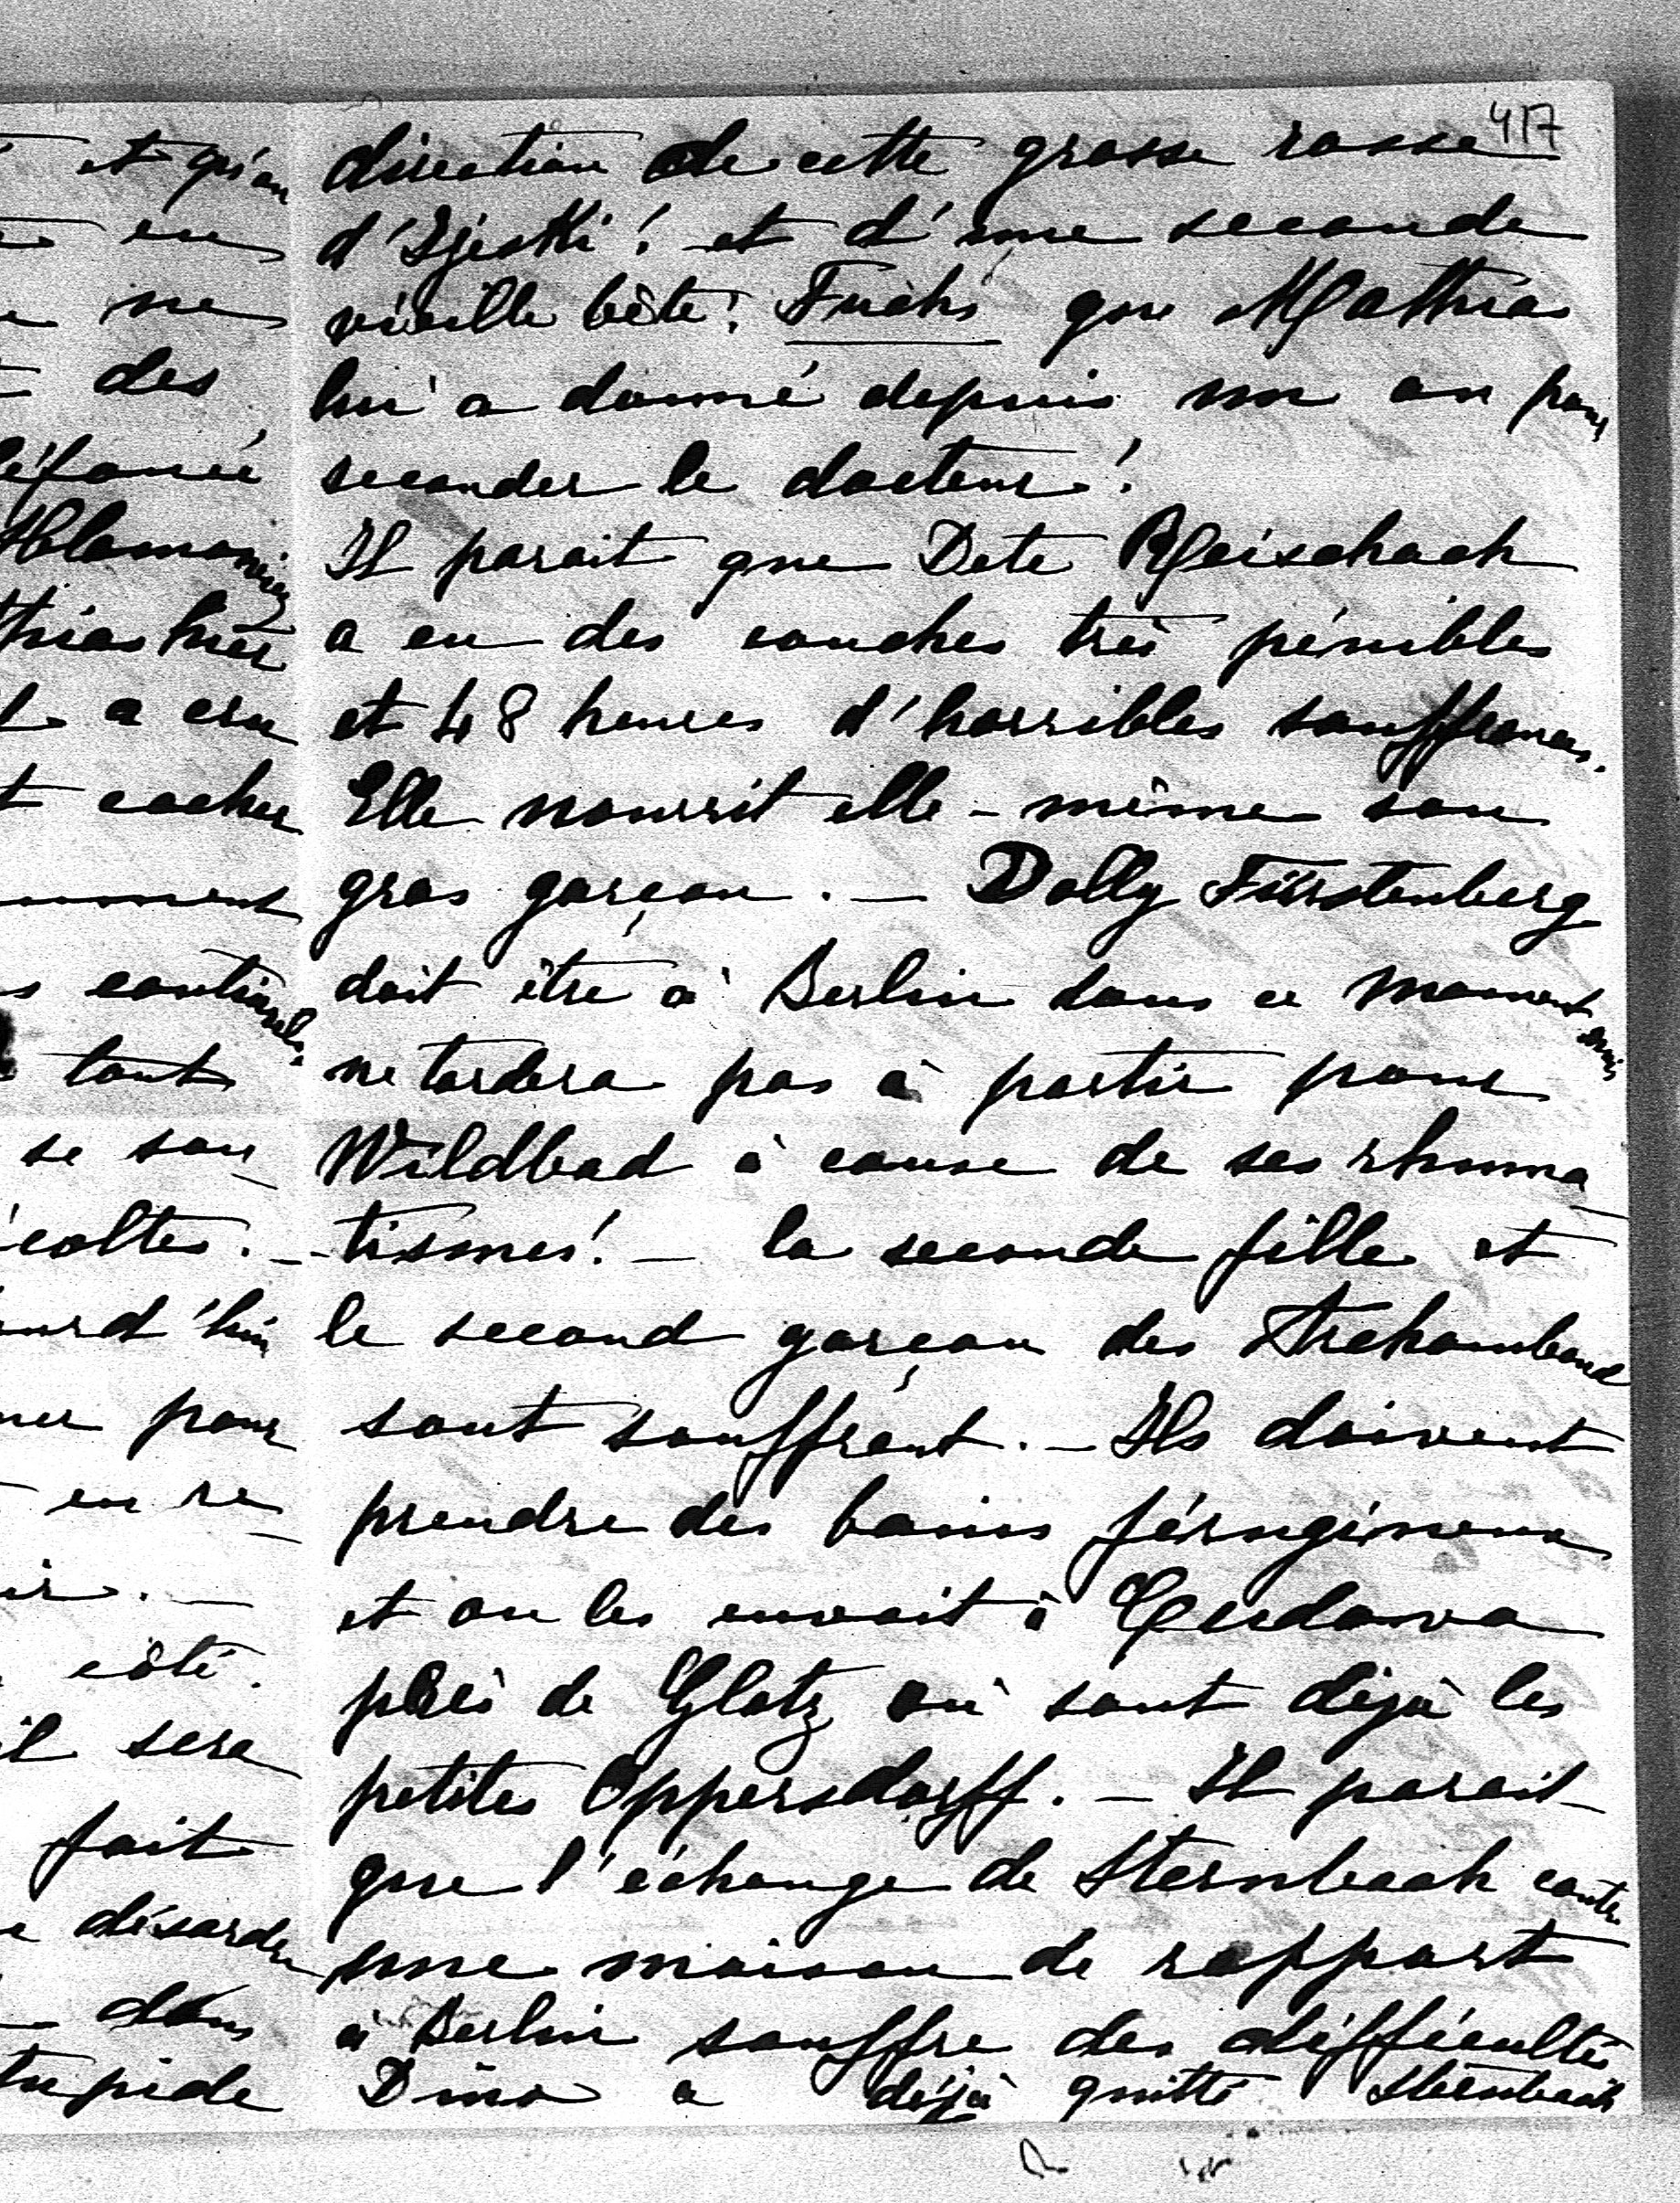 417
direction de cette grosse rosse
d'Ijeski! et d'une seconde
vieille bête: Fuchs que Mathias
lui a donné depuis un an pour
seconder le docteur!
Il parait que Dete Reischach
a eu des couches très pénibles
et 48 heures d'horribles souffrances.
Elle nourrit elle-même son
gros garçon. — Dolly Fürstenberg
doit être à Berlin dans ce moment mais
ne tardera pas à partir pour
Wildbad à cause de ses rhuma_
_tismes! — la seconde fille et
le second garçon des Archambaud
sont souffrant. — Ils doivent
prendre des bains férugineux
et on les envoit à Cudowa
près de Glatz où sont déjà les
petites Oppersdorff. — Il parait
que l'échange de Sternbach contre
une maison de rapport
à Berlin souffre des difficultés
Dino a déjà quitté Sternbach
et qu'on
en
ne
des
thias hier
a cru
cocher
tout
se sou_
coltes. —
urd'hui
pour
en re_
côté.
il sera
fait
désordre
dans
tupide